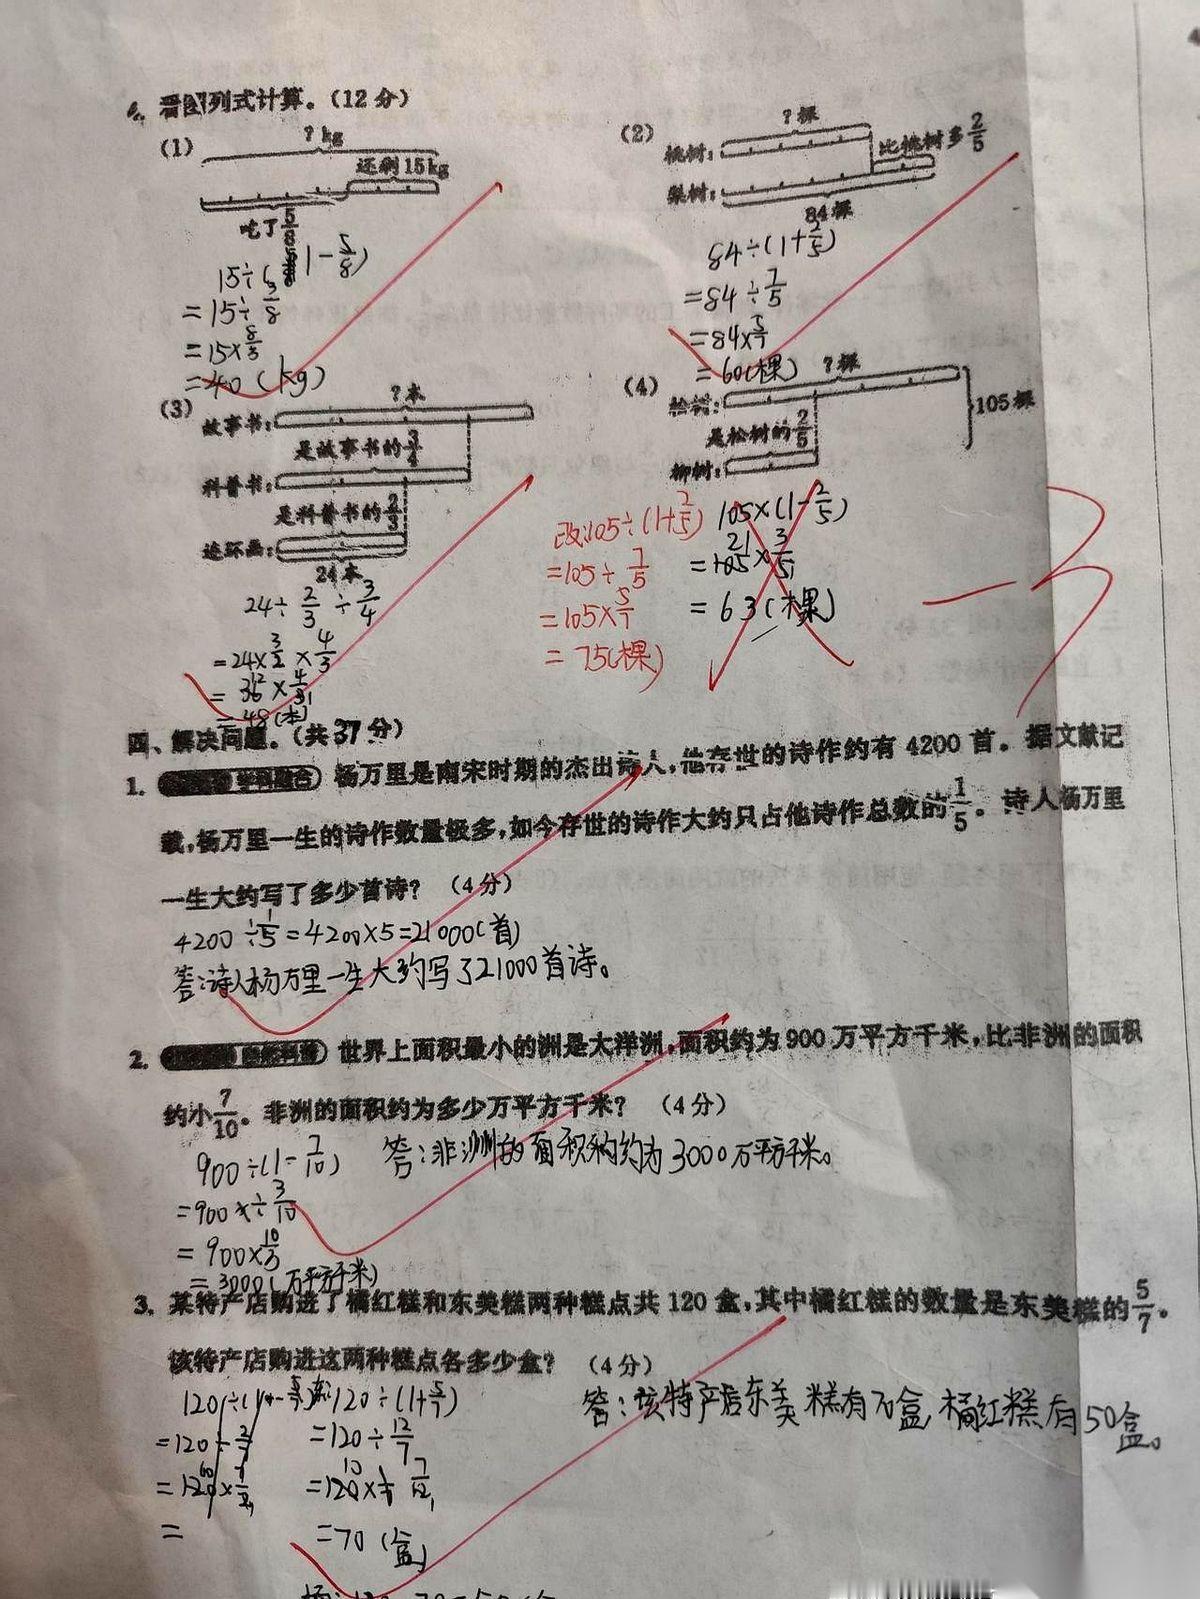 看图列式计算。(12分)
(1)
? kg
还剩15kg
吃了5/8
15÷(1-5/8)
=15÷3/8
=15×8/3
=40(kg)
(2)
? 棵
桃树:
比桃树多2/5
梨树:
84棵
84÷(1+2/5)
=84÷7/5
=84×5/7
=60(棵)
(3)
? 本
故事书:
是故事书的3/4
科普书:
是科普书的2/3
连环画:
24本
24÷2/3÷3/4
=24×3/2×4/3
=36×4/3
=48(本)
(4)
? 棵
松树:
105棵
是松树的2/5
柳树:
105×(1-2/5)
=105×3/5
=63(棵)
改:105÷(1+2/5)
=105÷7/5
=105×5/7
=75(棵)
-3
四、解决问题。(共37分)
1. 学科融合 杨万里是南宋时期的杰出诗人,他存世的诗作约有4200首。据文献记
载,杨万里一生的诗作数量极多,如今存世的诗作大约只占他诗作总数的1/5。诗人杨万里
一生大约写了多少首诗? (4分)
4200÷1/5=4200×5=21000(首)
答:诗人杨万里一生大约写了21000首诗。
2. 世界上面积最小的洲是大洋洲,面积约为900万平方千米,比非洲的面积
约小7/10。非洲的面积约为多少万平方千米? (4分)
900÷(1-7/10)
=900÷3/10
=900×10/3
=3000(万平方千米)
答:非洲的面积约为3000万平方千米。
3. 某特产店购进了橘红糕和东美糕两种糕点共120盒,其中橘红糕的数量是东美糕的5/7。
该特产店购进这两种糕点各多少盒? (4分)
东:120÷(1+5/7)
=120÷12/7
=120×7/12
=70(盒)
答:该特产店东美糕有70盒,橘红糕有50盒。